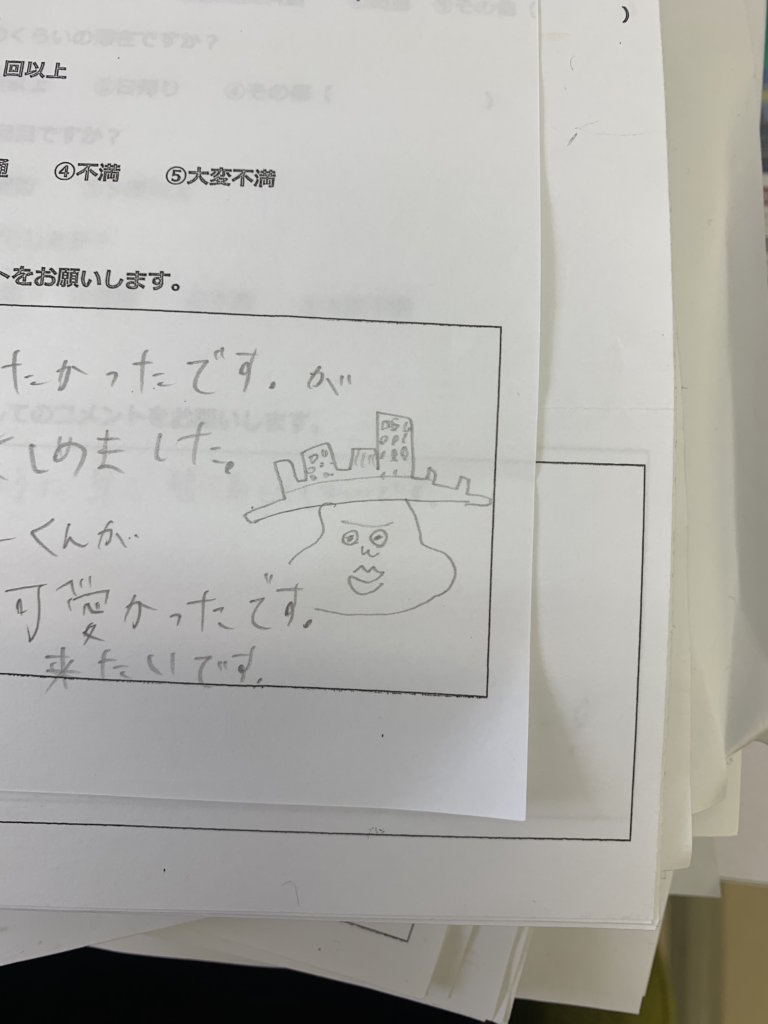 )
回以上
④不満 ⑤大変不満
トをお願いします。
たかったです。が
しめました。
くんが
可愛かったです。
来たいです。